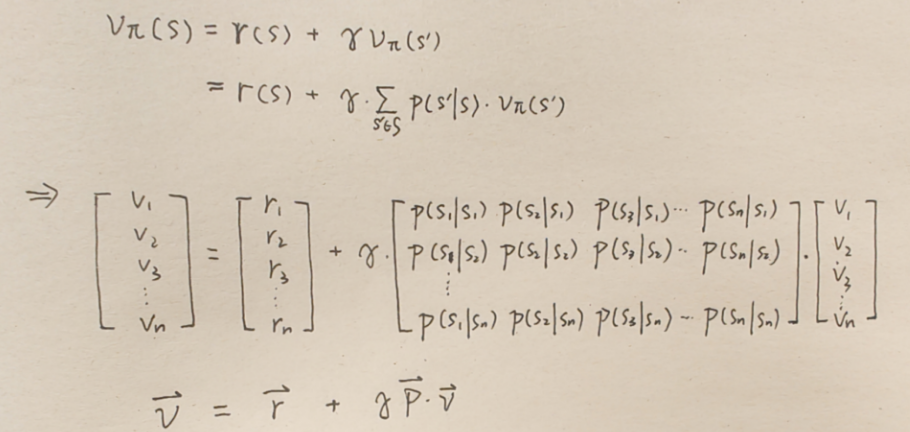 Vπ(s) = r(s) + γ Vπ(s')
= r(s) + γ · ∑ s'∈S p(s'|s) · Vπ(s')
⇒ [ V₁ V₂ V₃ ⋮ Vn ] = [ r₁ r₂ r₃ ⋮ rn ] + γ · [ p(s₁|s₁) p(s₂|s₁) p(s₃|s₁) ··· p(sn|s₁)
p(s₁|s₂) p(s₂|s₂) p(s₃|s₂) ·· p(sn|s₂)
⋮
p(s₁|sn) p(s₂|sn) p(s₃|sn) ·· p(sn|sn) ] · [ V₁ V₂ V₃ ⋮ Vn ]
v⃗ = r⃗ + γ P⃗ · v⃗